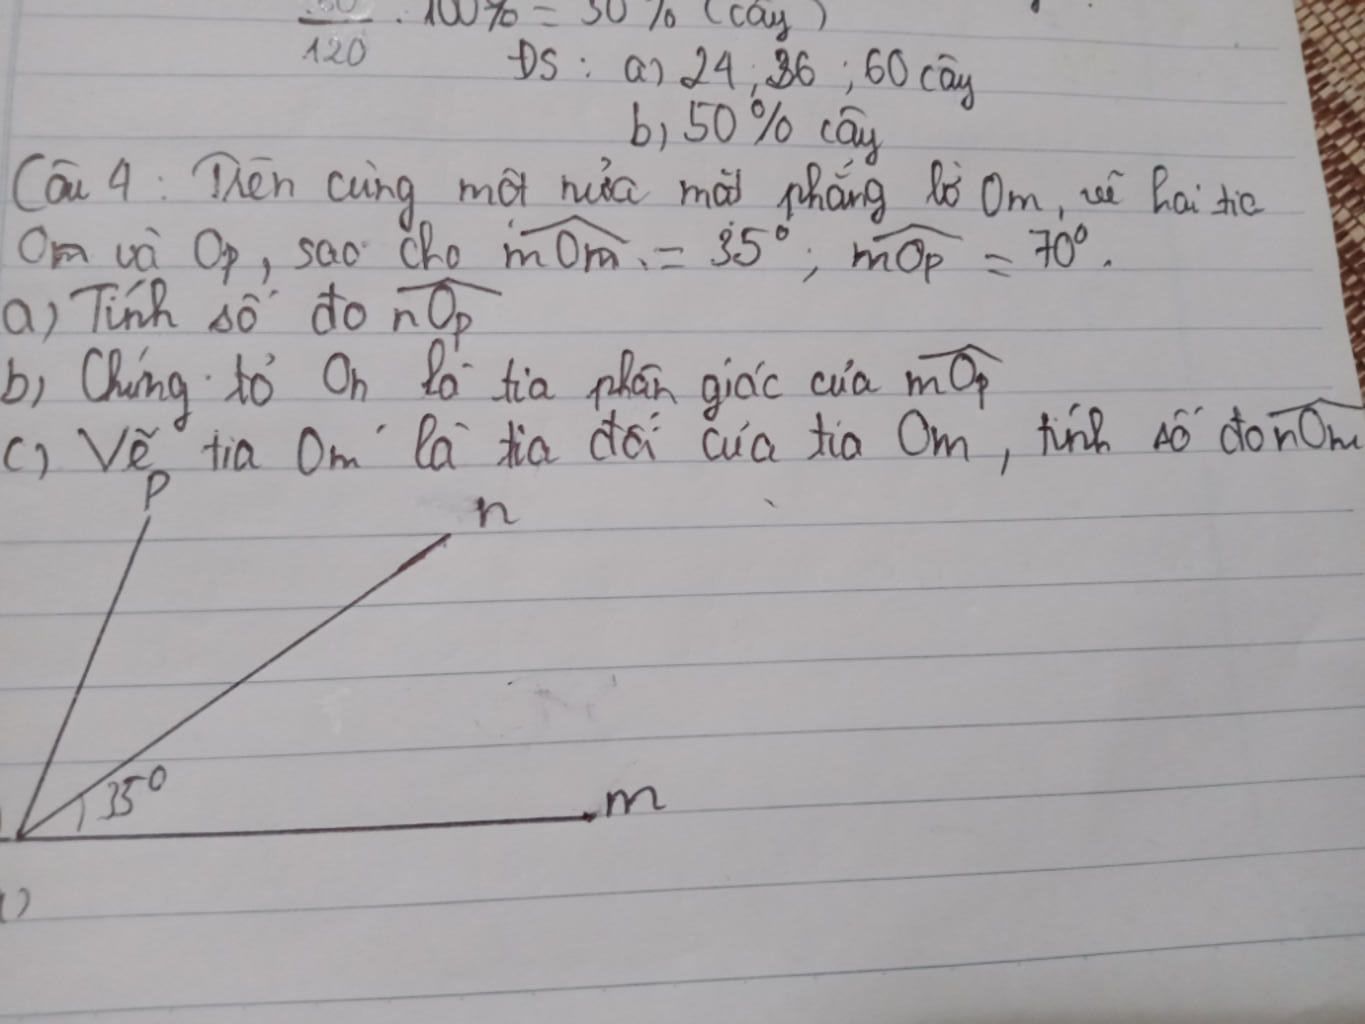 120 . 100% = 50% (cây)
ĐS : a) 24 ; 36 ; 60 cây
b) 50% cây
Câu 4 : Trên cùng một nửa mặt phẳng bờ Om, vẽ hai tia
Om và Op, sao cho mOm = 35° ; mOp = 70°.
a) Tính số đo nOp
b) Chứng tỏ On là tia phân giác của mOp
c) Vẽ tia Om' là tia đối của tia Om, tính số đo nOm
p
n
35°
m